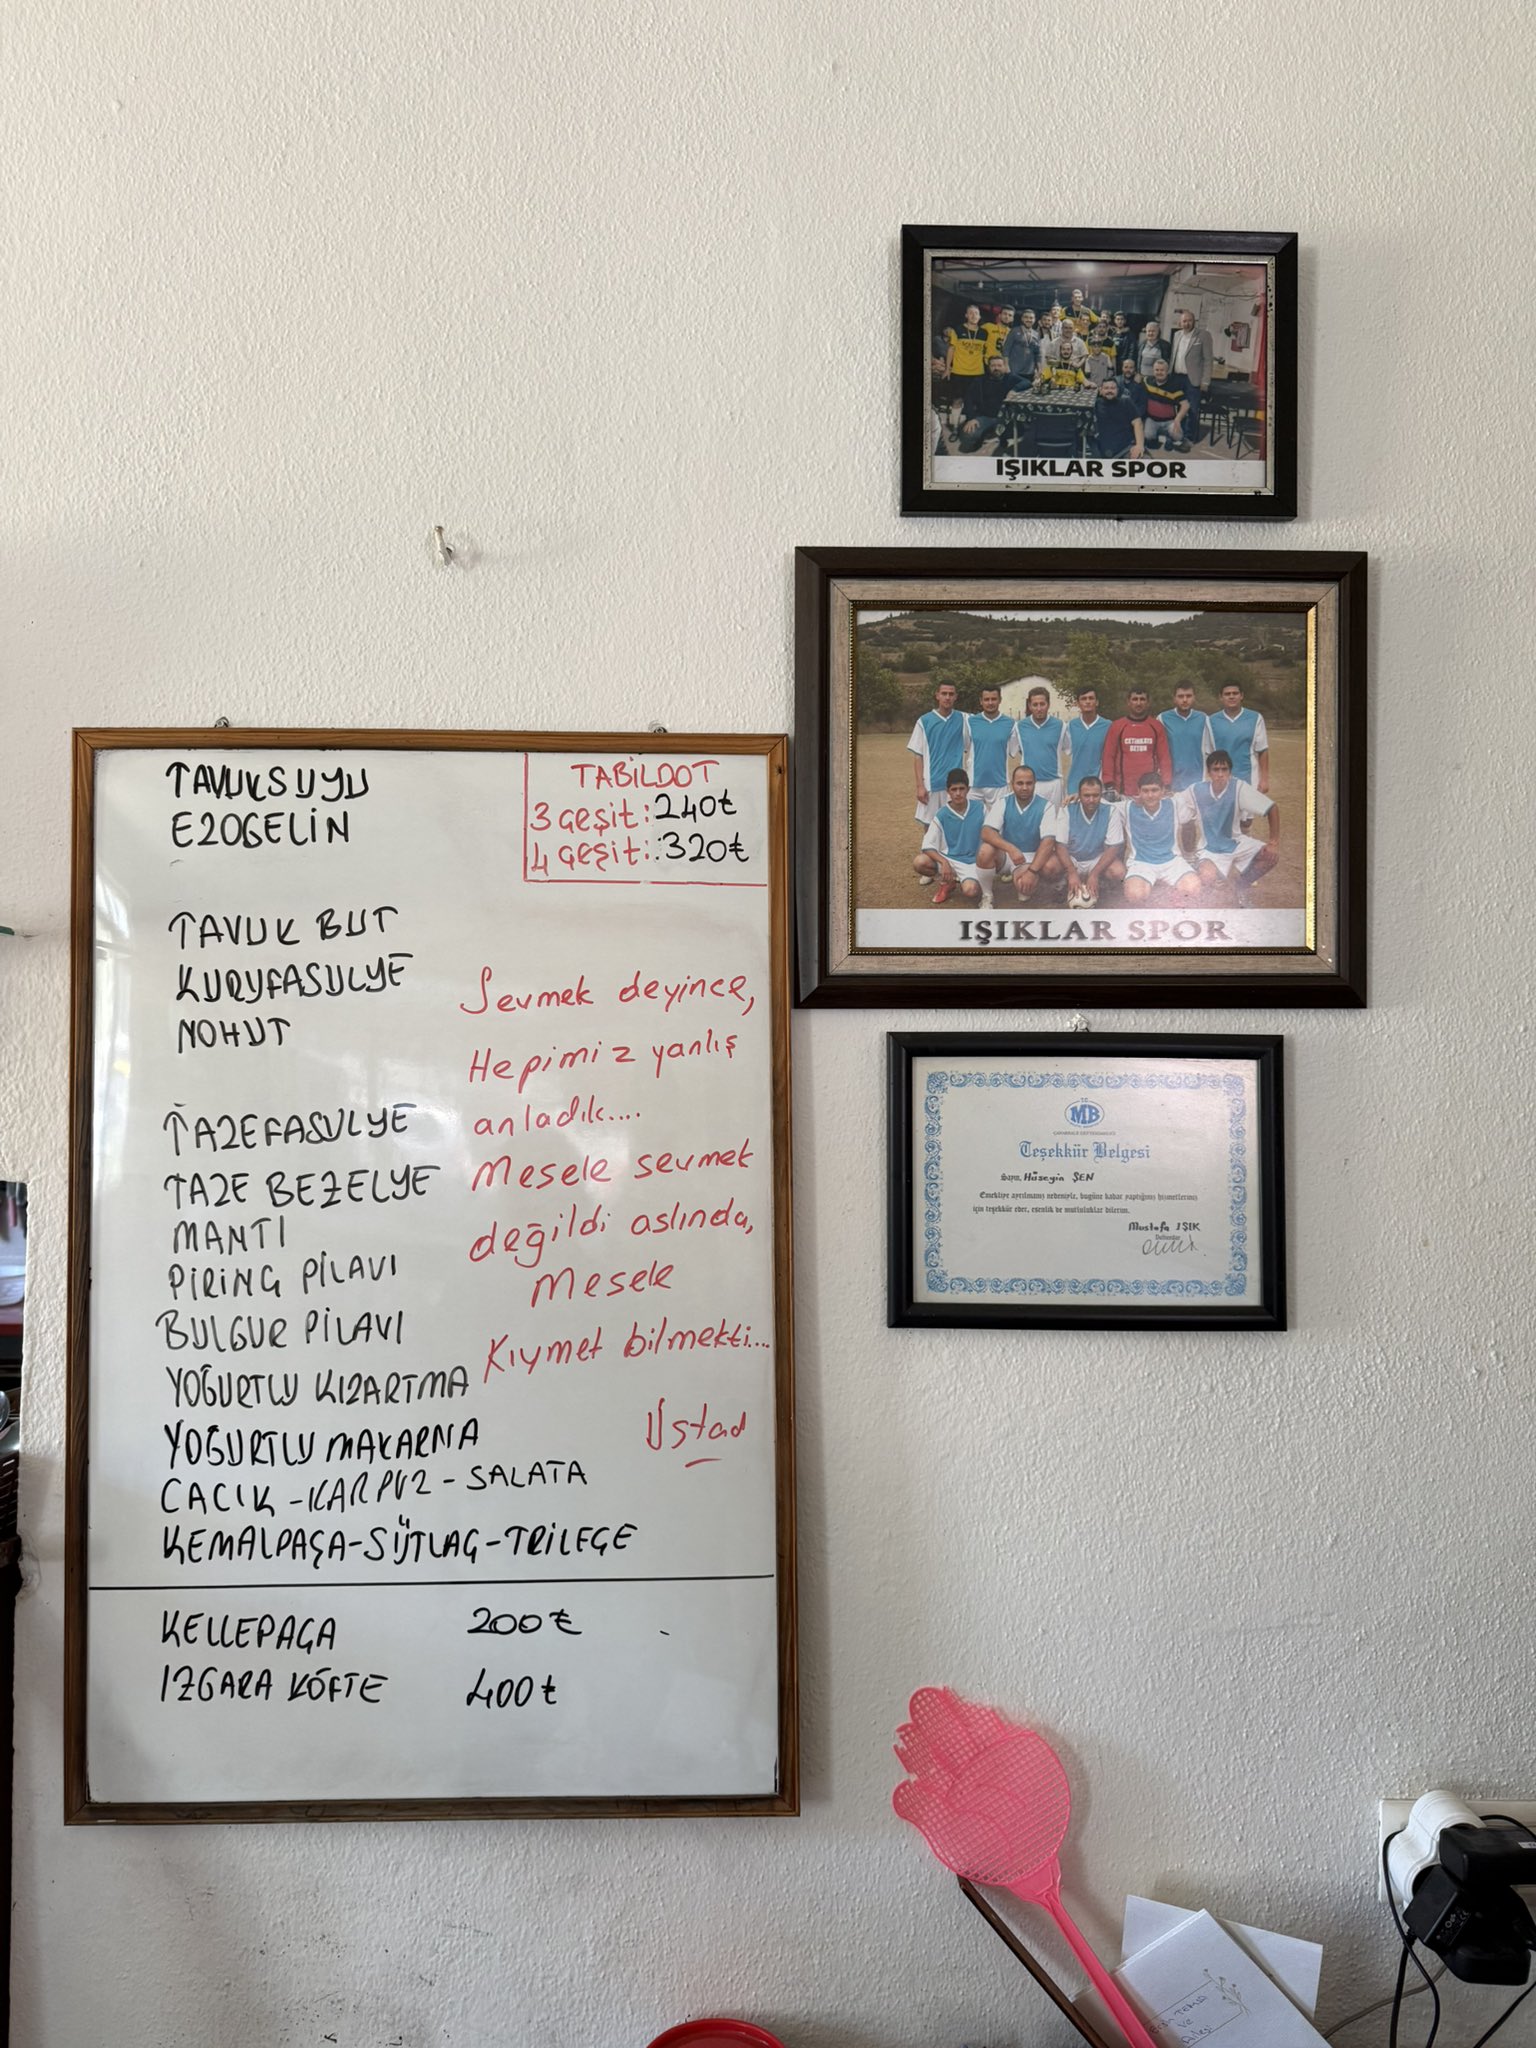 TAVUKSUYU
EZOGELİN
TAVUK BUT
KURUFASULYE
NOHUT
TAZEFASULYE
TAZE BEZELYE
MANTI
PİRİNÇ PİLAVI
BULGUR PİLAVI
YOĞURTLU KIZARTMA
YOĞURTLU MAKARNA
CACIK-KARPUZ-SALATA
KEMALPAŞA-SÜTLAÇ-TRİLEÇE
KELLEPAÇA 200₺
IZGARA KÖFTE 400₺
TABİLDOT
3 ÇEŞİT: 240₺
4 ÇEŞİT: 320₺
Sevmek deyince,
Hepimiz yanlış
anladık....
Mesele sevmek
değildi aslında,
Mesele
Kıymet bilmekti....
Üstad
IŞIKLAR SPOR
ÇETİNKAYA
BETON
IŞIKLAR SPOR
T.C.
MB
ÇANAKKALE DEFTERDARLIĞI
Teşekkür Belgesi
Sayın, Hüseyin ŞEN
Emekliye ayrılmanız nedeniyle, bugüne kadar yaptığınız hizmetleriniz
için teşekkür eder, esenlik ve mutluluklar dilerim.
Mustafa IŞIK
Defterdar
ve